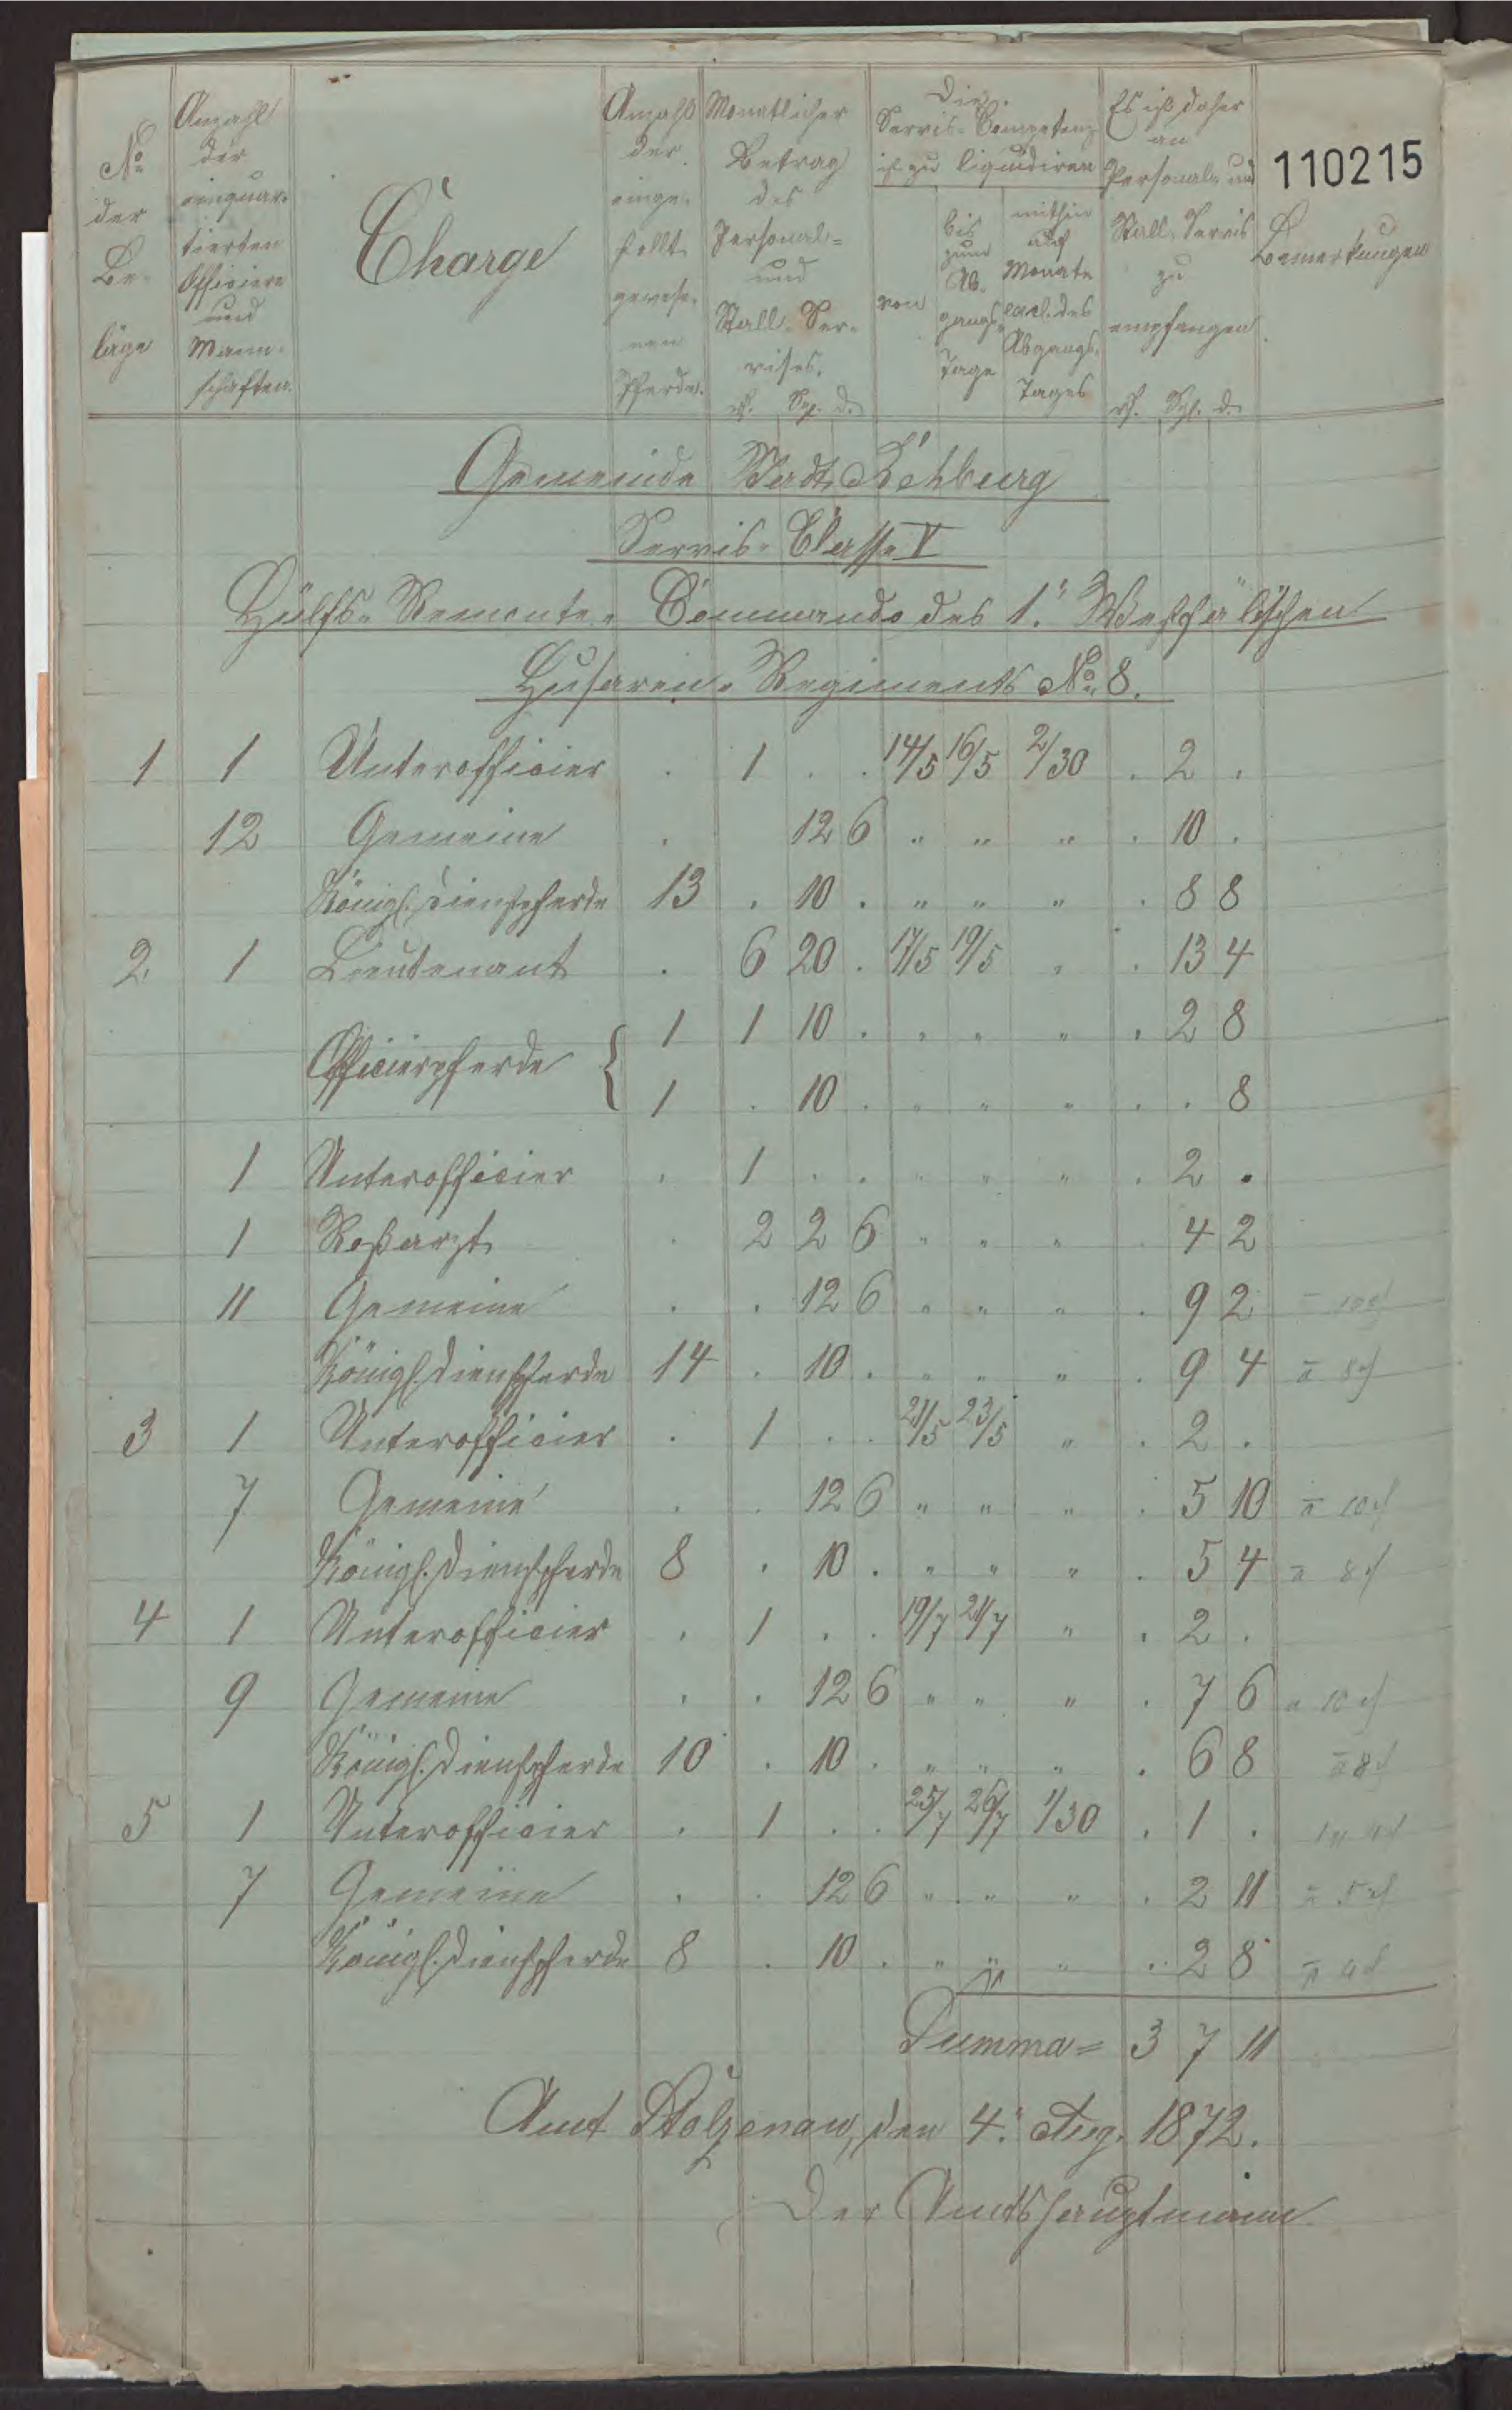 110215
No der Be- läge
Anzahl der einquar- tierten Officiere und Mann- schaften.
Charge
Anzahl der einge- stellt gewese- nen Pferde.
Monatlicher Betrag des Personal- und Stall-Ser- vises.
rℓ. Sgr. d.
Die Servis-Competenz ist zu liquidiren
von
bis zum Ab- gangs- Tage
mithin auf Monate excl. des Abgangs- Tages
Es ist daher an Personal- und Stall-Servis zu empfangen
rℓ. Sgr. d.
Bemerkungen
Gemeinde Stadt Rehburg
Servis-Classe V
Hülfs-Remonte-Commando des 1. Westfälischen
Husaren-Regiments No. 8.
1 1 Unterofficier . 1 . . 14/5 16/5 2/30 . 2 .
12 Gemeine . 12 6 " " " . 10 .
Königl. Dienstpferde 13 . 10 . " " " . 8 8
2 1 Lieutenant . 6 20 . 17/5 19/5 " . 13 4
Officierpferde { 1 1 10 . " " " . 2 8
1 . 10 . " " " . . 8
1 Unterofficier . 1 . . " " " . 2 .
1 Roßarzt . 2 2 6 " " " . 4 2
11 Gemeine . . 12 6 " " " . 9 2
Königl. Dienstpferde 14 . 10 . " " " . 9 4 a 8 d
3 1 Unterofficier . 1 . . 21/5 23/5 " . 2 .
7 Gemeine . . 12 6 " " " . 5 10 a 10 d
Königl. Dienstpferde 8 . 10 . " " " . 5 4 a 8 d
4 1 Unterofficier . 1 . . 19/7 21/7 " . 2 .
9 Gemeine . . 12 6 " " " . 7 6 a 10 d
Königl. Dienstpferde 10 . 10 . " " " . 6 8 a 8 d
5 1 Unterofficier . 1 . . 25/7 26/7 1/30 . 1 .
7 Gemeine . . 12 6 " " " . 2 11 a 5 d
Königl. Dienstpferde 8 . 10 . " " " . 2 8 a 4 d
Summa = 3 7 11
Amt Stolzenau, den 4. Aug. 1872.
Der Amtshauptmann